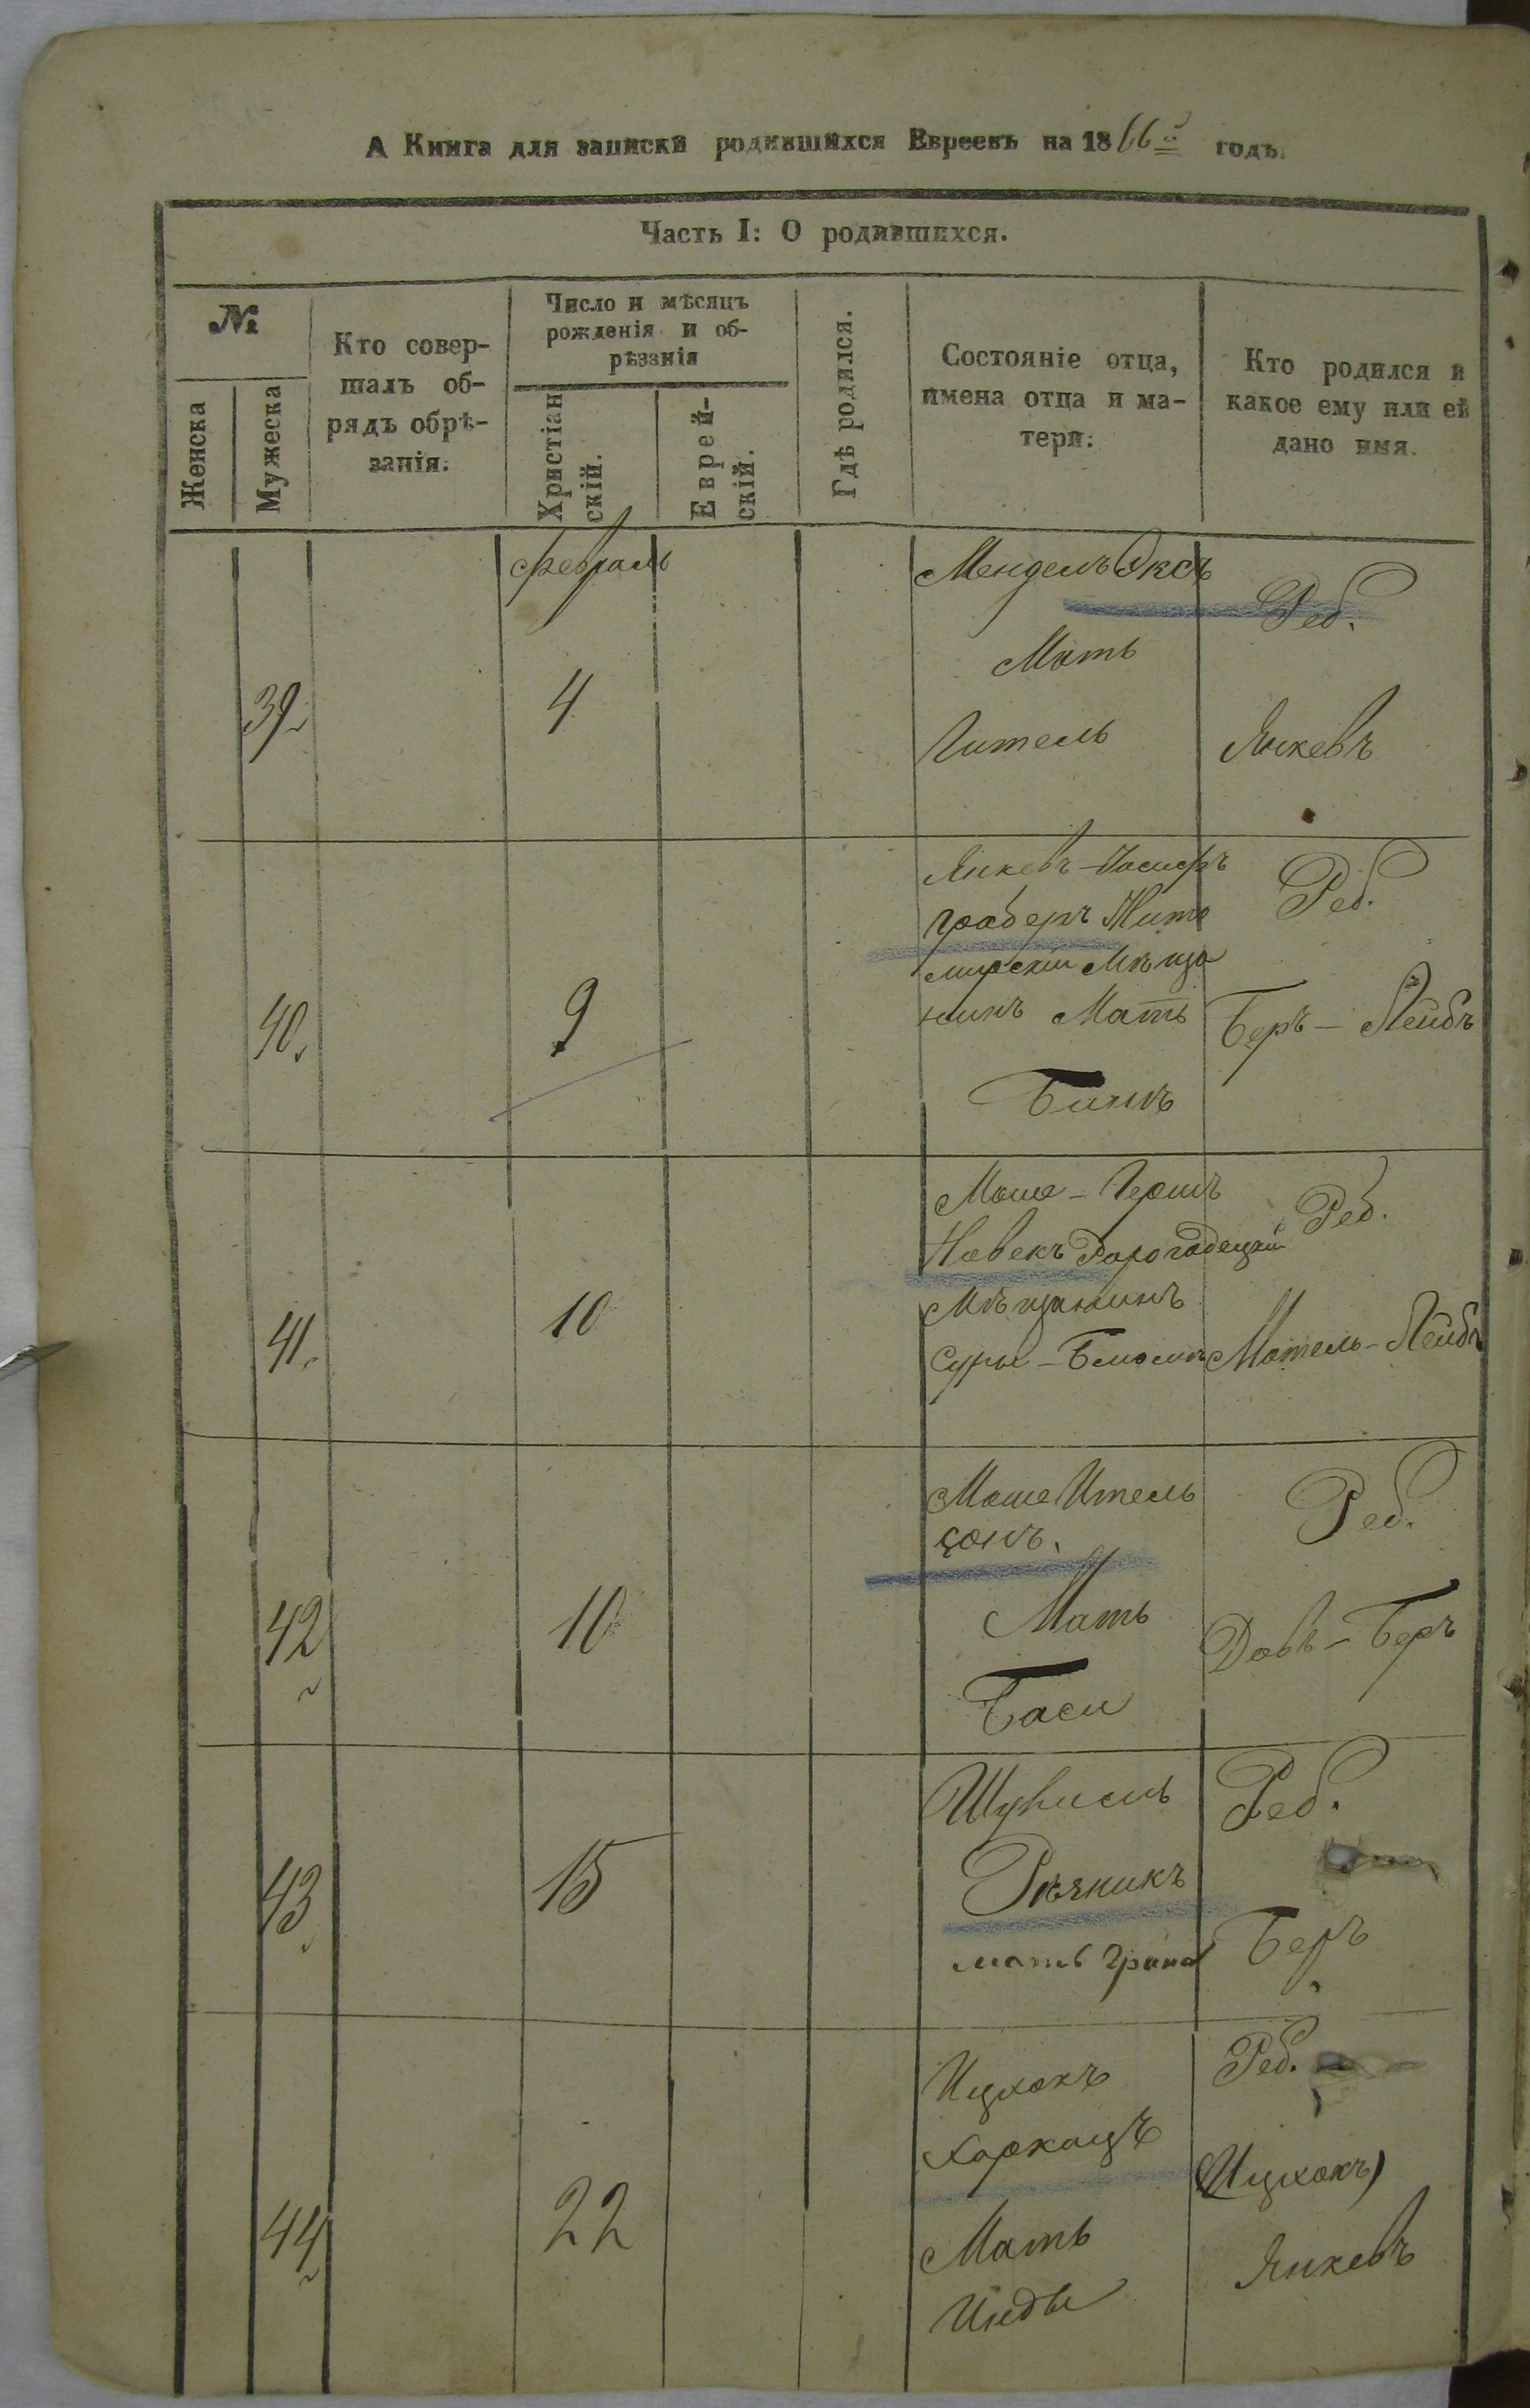 А Книга для записки родившихся Евреевъ на 1866й годъ.
Часть I: О родившихся.
№
Женска
Мужеска
Кто совер-
шалъ об-
рядъ обрѣ-
занія.
Число и мѣсяцъ
рожденія и об-
рѣзанія
Христіан
скій.
Еврей-
скій.
Гдѣ родился.
Состояніе отца,
имена отца и ма-
тери.
Кто родился и
какое ему или еѣ
дано имя.
февраль
39
4
Мендель Эксъ
Мать
Гитель
Реб.
Янкевъ
40
9
Янкевъ-Иосифъ
Граберъ Жито
мирскій Мѣща
нинъ Мать
Реб.
Беръ-Лейбъ
41
10
Моше-Гершъ
Новекъ
Мѣщанинъ
Суры-
Реб.
Мотель-Лейбъ
42
10
Моше Ительсонъ.
Мать
Баси
Реб.
Довъ-Беръ
43
15
Рѣзникъ
мать
Реб.
Беръ
44
22
Ицхокъ
Харкацъ
Мать
Инды
Реб.
(Ицхокъ)
Янкевъ